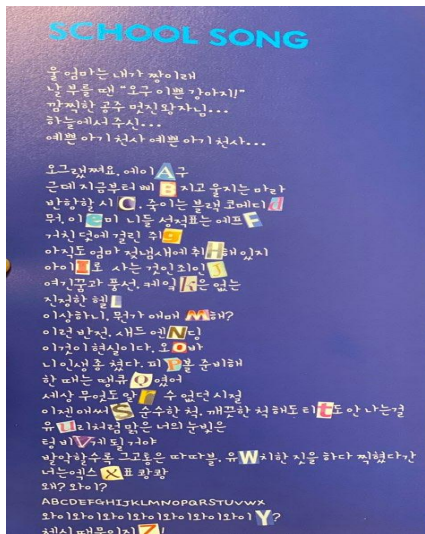 SCHOOL SONG
울 엄마는 내가 짱이래
날 부를 땐 "오구 이쁜 강아지!"
깜찍한 공주 멋진 왕자님...
하늘에서 주신...
예쁜 아기 천사 예쁜 아기 천사...
오그랬쪄요. 에이A구
근데 지금부터 삐B지고 울지는 마라
반항할 시C. 죽이는 블랙 코메디d
뭐, 이e미 니들 성적표는 에프F
거친 덫에 걸린 쥐g
아직도 엄마 젖냄새에 취H해 있지
아이I로 사는 것인 죄인J
여긴 꿈과 풍선, 케익k은 없는
진정한 헬L
이상하니. 뭔가 애매 M해?
이런 반전, 새드 엔N딩
이것이 현실이다. 오O바
니 인생 종 쳤다. 피P볼 준비해
한 때는 땡큐Q였어
세상 무엇도 알r 수 없던 시절
이젠 애써S 순수한 척, 깨끗한 척해도 티t도 안 나는걸
유u리처럼 맑은 너의 눈빛은
텅 비V게 될 거야
발악할수록 그 고통은 따따블. 유W치한 짓을 하다 찍혔다간
너는 엑스X표 쾅쾅
왜? 와이?
ABCDEFGHIJKLMNOPQRSTUVWX
와이와이와이와이와이와이와이와이Y?